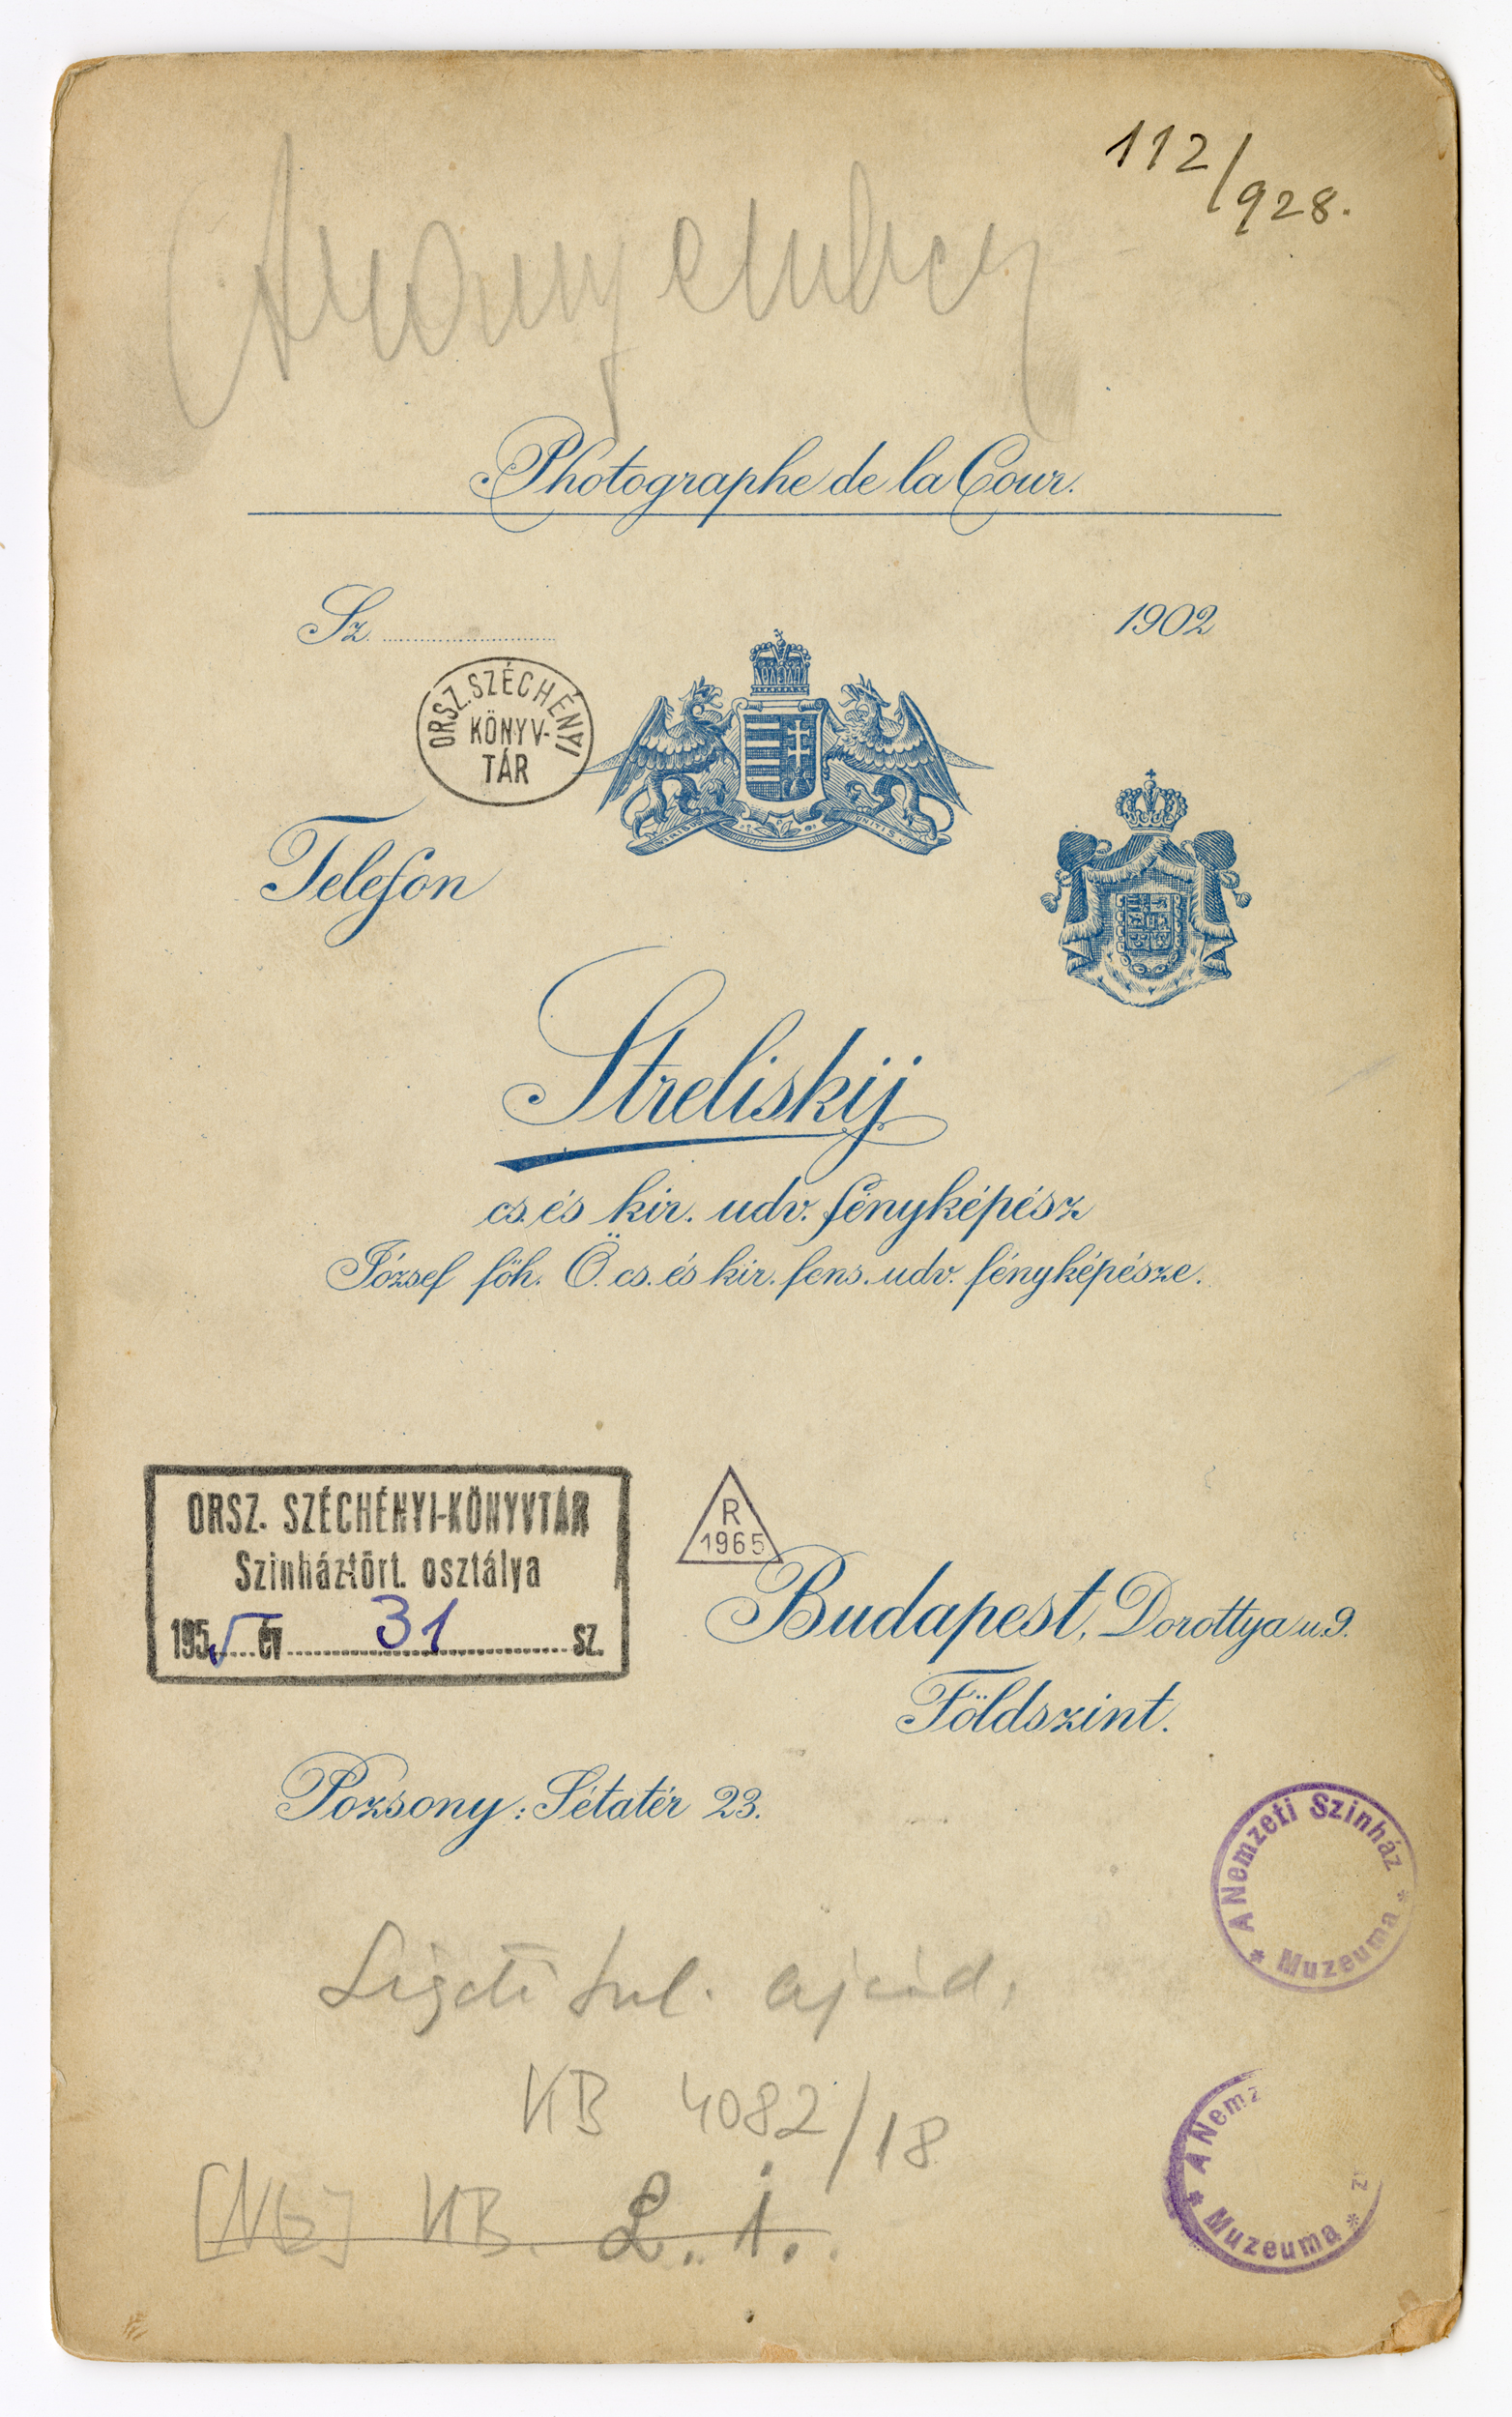 112/928.
Arany ember
Photographe de la Cour.
Sz.
1902
ORSZ. SZÉCHÉNYI
KÖNYV-
TÁR
VIRIBUS UNITIS.
Telefon
Streliskij
cs. és kir. udv. fényképész
József föh. Ö cs. és kir. fens. udv. fényképésze.
ORSZ. SZÉCHÉNYI-KÖNYVTÁR
Szinháztört. osztálya
1955 év 31 sz.
R
1965
Budapest, Dorottya u. 9.
Földszint.
Pozsony: Sétatér 23.
A Nemzeti Szinház
* Muzeuma *
Ligeti Jul. ajánd.
KB 4082/18
A Nemz z
* Muzeuma *
KB. 2. 1.